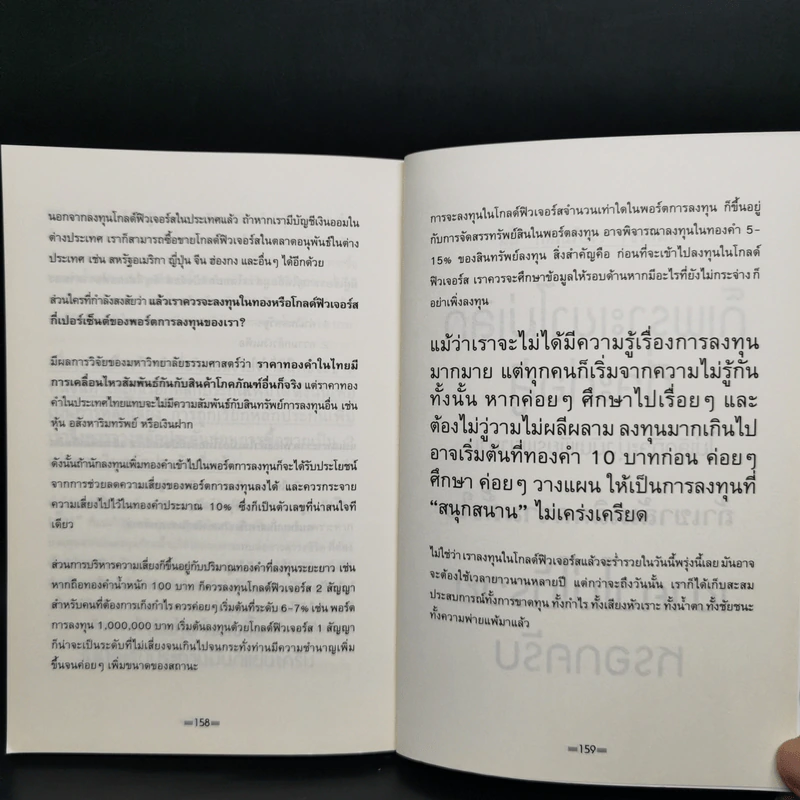 นอกจากลงทุนโกลด์ฟิวเจอร์สในประเทศแล้ว ถ้าหากเรามีบัญชีเงินออมใน
ต่างประเทศ เราก็สามารถซื้อขายโกลด์ฟิวเจอร์สในตลาดอนุพันธ์ในต่าง
ประเทศ เช่น สหรัฐอเมริกา ญี่ปุ่น จีน ฮ่องกง และอื่นๆ ได้อีกด้วย
ส่วนใครที่กำลังสงสัยว่า แล้วเราควรจะลงทุนในทองหรือโกลด์ฟิวเจอร์ส
กี่เปอร์เซ็นต์ของพอร์ตการลงทุนของเรา?
มีผลการวิจัยของมหาวิทยาลัยธรรมศาสตร์ว่า ราคาทองคำในไทยมี
การเคลื่อนไหวสัมพันธ์กันกับสินค้าโภคภัณฑ์อื่นก็จริง แต่ราคาทอง
คำในประเทศไทยแทบจะไม่มีความสัมพันธ์กับสินทรัพย์การลงทุนอื่น เช่น
หุ้น อสังหาริมทรัพย์ หรือเงินฝาก
ดังนั้นถ้านักลงทุนเพิ่มทองคำเข้าไปในพอร์ตการลงทุนก็จะได้รับประโยชน์
จากการช่วยลดความเสี่ยงของพอร์ตการลงทุนลงได้ และควรกระจาย
ความเสี่ยงไปไว้ในทองคำประมาณ 10% ซึ่งก็เป็นตัวเลขที่น่าสนใจที
เดียว
ส่วนการบริหารความเสี่ยงก็ขึ้นอยู่กับปริมาณทองคำที่ลงทุนระยะยาว เช่น
หากถือทองคำน้ำหนัก 100 บาท ก็ควรลงทุนโกลด์ฟิวเจอร์ส 2 สัญญา
สำหรับคนที่ต้องการเก็งกำไร ควรค่อยๆ เริ่มต้นที่ระดับ 6-7% เช่น พอร์ต
การลงทุน 1,000,000 บาท เริ่มต้นลงทุนด้วยโกลด์ฟิวเจอร์ส 1 สัญญา
ก็น่าจะเป็นระดับที่ไม่เสี่ยงจนเกินไปจนกระทั่งท่านมีความชำนาญเพิ่ม
ขึ้นจนค่อยๆ เพิ่มขนาดของสถานะ
158
การจะลงทุนในโกลด์ฟิวเจอร์สจำนวนเท่าใดในพอร์ตการลงทุน ก็ขึ้นอยู่
กับการจัดสรรทรัพย์สินในพอร์ตลงทุน อาจพิจารณาลงทุนในทองคำ 5-
15% ของสินทรัพย์ลงทุน สิ่งสำคัญคือ ก่อนที่จะเข้าไปลงทุนในโกลด์
ฟิวเจอร์ส เราควรจะศึกษาข้อมูลให้รอบด้านหากมีอะไรที่ยังไม่กระจ่าง ก็
อย่าเพิ่งลงทุน
แม้ว่าเราจะไม่ได้มีความรู้เรื่องการลงทุน
มากมาย แต่ทุกคนก็เริ่มจากความไม่รู้กัน
ทั้งนั้น หากค่อยๆ ศึกษาไปเรื่อยๆ และ
ต้องไม่วู่วามไม่ผลีผลาม ลงทุนมากเกินไป
อาจเริ่มต้นที่ทองคำ 10 บาทก่อน ค่อยๆ
ศึกษา ค่อยๆ วางแผน ให้เป็นการลงทุนที่
“สนุกสนาน” ไม่เคร่งเครียด
ไม่ใช่ว่า เราลงทุนในโกลด์ฟิวเจอร์สแล้วจะร่ำรวยในวันนี้พรุ่งนี้เลย มันอาจ
จะต้องใช้เวลายาวนานหลายปี แต่กว่าจะถึงวันนั้น เราก็ได้เก็บสะสม
ประสบการณ์ทั้งการขาดทุน ทั้งกำไร ทั้งเสียงหัวเราะ ทั้งน้ำตา ทั้งชัยชนะ
ทั้งความพ่ายแพ้มาแล้ว
159